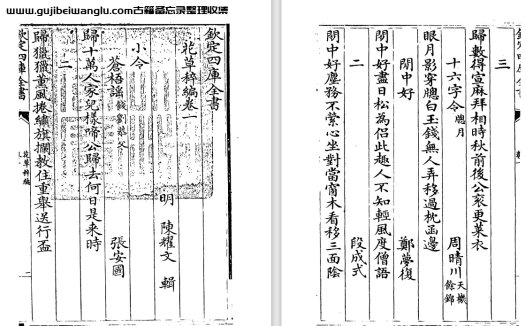 www.gujibeiwanglu.com古籍备忘录整理收集
欽定四庫全書
花草粹編卷一
明 陳耀文 輯
小令
蒼梧謡 餞劉恭父 張安國
歸十萬人家兒樣啼公歸去何日是來時
二
歸獵獵薰風捲繡旗攔教住重舉送行盃
欽定四庫全書
花草粹編
三
歸數得宣麻拜相時秋前後公衮更萊衣
十六字令 牕月 周晴川 天機餘錦
眠月影穿牕白玉錢無人弄移過枕函邊
閒中好 鄭夢復
閒中好盡日松為侣此趣人不知輕風度僧語
二 段成式
閒中好塵務不縈心坐對當窗木看移三面陰